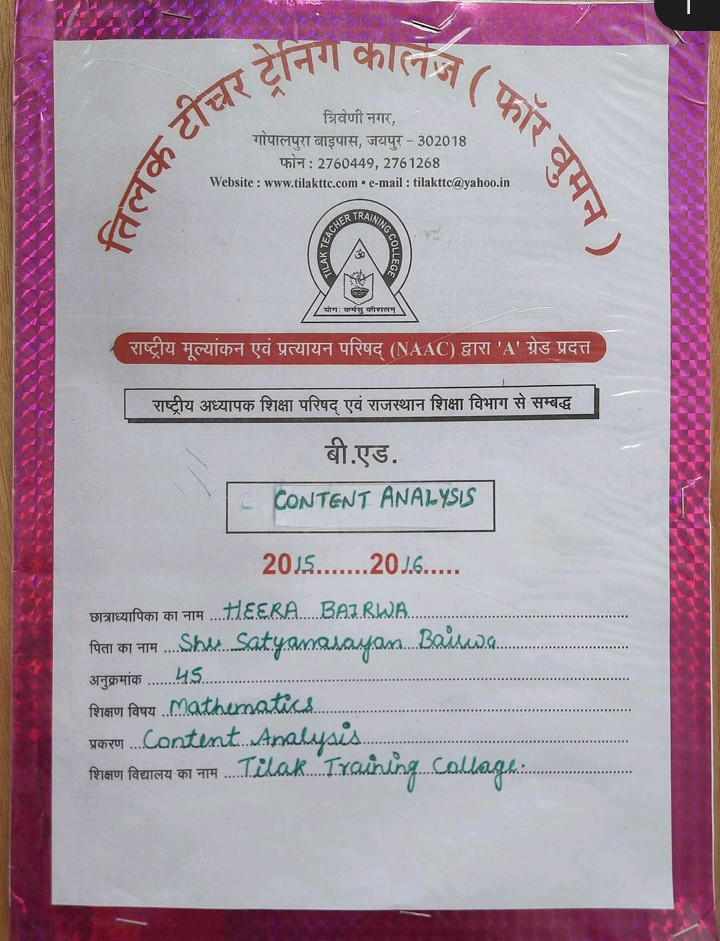 तिलक टीचर ट्रेनिंग कॉलेज ( फॉर वुमन )
त्रिवेणी नगर,
गोपालपुरा बाइपास, जयपुर - 302018
फोन : 2760449, 2761268
Website : www.tilakttc.com • e-mail : tilakttc@yahoo.in
TILAK TEACHER TRAINING COLLEGE
ॐ
योगः कर्मसु कौशलम्
राष्ट्रीय मूल्यांकन एवं प्रत्यायन परिषद् (NAAC) द्वारा 'A' ग्रेड प्रदत्त
राष्ट्रीय अध्यापक शिक्षा परिषद् एवं राजस्थान शिक्षा विभाग से सम्बद्ध
बी.एड.
CONTENT ANALYSIS
2015.......2016.....
छात्राध्यापिका का नाम ...HEERA BAIRWA
पिता का नाम ...Shri Satyanarayan Bairwa
अनुक्रमांक ......45
शिक्षण विषय ...Mathematics
प्रकरण ...Content Analysis
शिक्षण विद्यालय का नाम ...Tilak Training Collage.